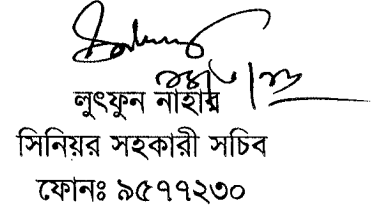 লুৎফুন নাহার
সিনিয়র সহকারী সচিব
ফোনঃ ৯৫৭৭২৩০